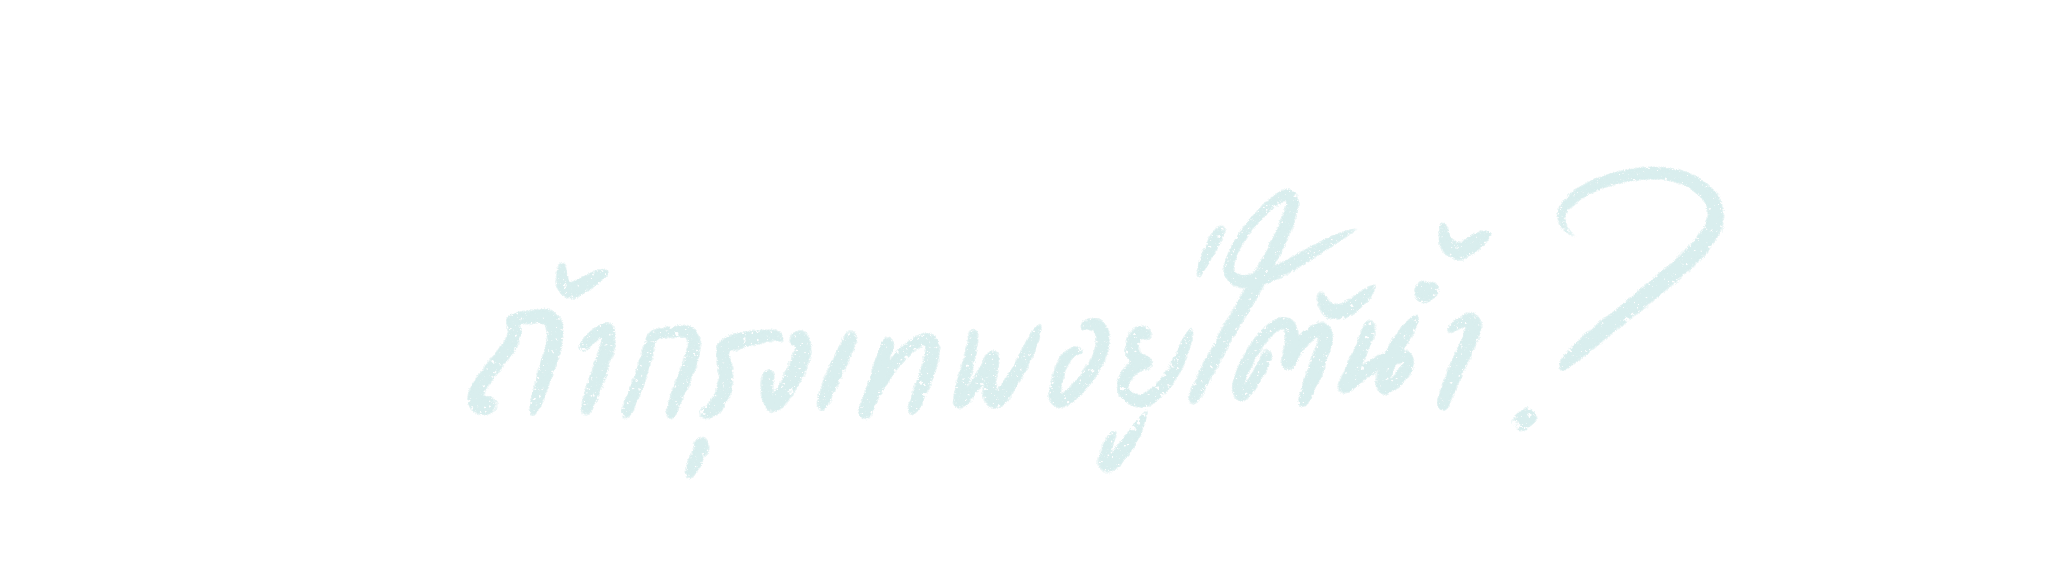 ถ้ากรุงเทพอยู่ใต้น้ำ?